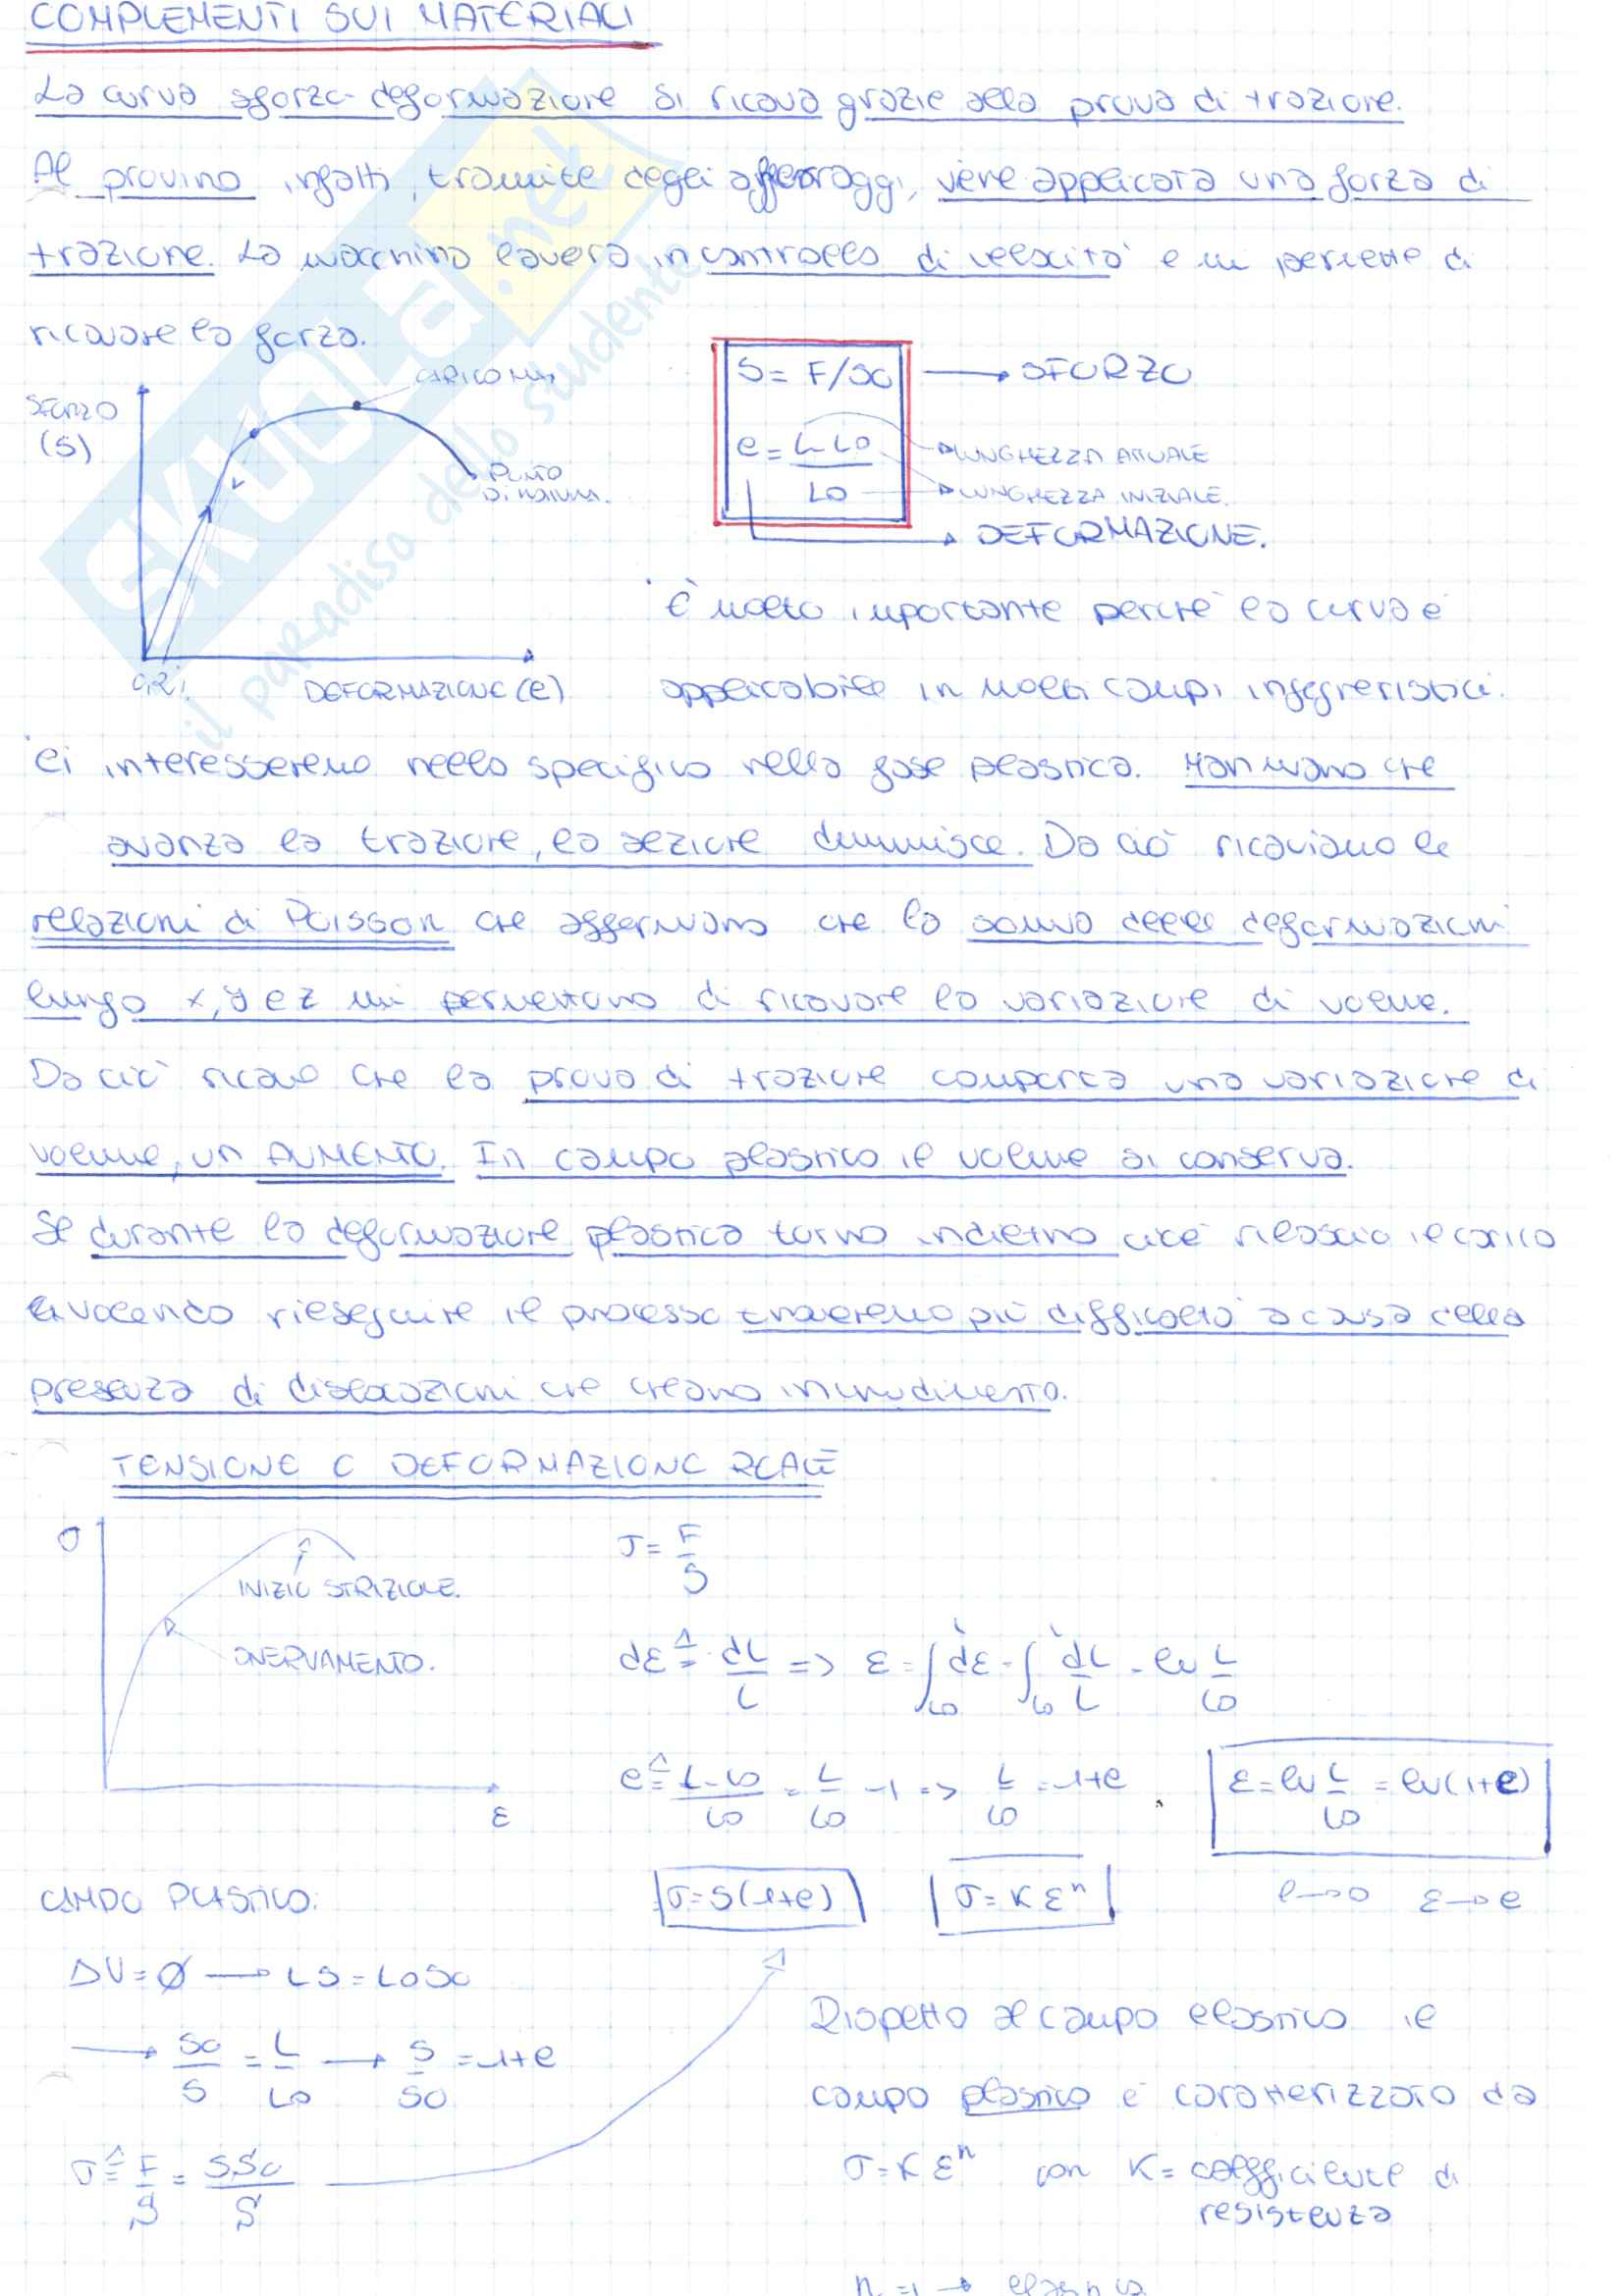 COMPLEMENTI SUI MATERIALI
La curva sforzo-deformazione si ricava grazie alla prova di trazione.
Al provino infatti, tramite degli afferraggi, viene applicata una forza di
trazione. La macchina lavora in controllo di velocità e mi permette di
ricavare la forza.
SFORZO
(S)
CARICO MAX
PUNTO
DI
0,2%
DEFORMAZIONE (e)
S = F/S0 → SFORZO
e = L-L0 / L0
LUNGHEZZA ATTUALE
LUNGHEZZA INIZIALE.
DEFORMAZIONE.
È molto importante perché la curva è
applicabile in molti campi ingegneristici.
Ci interesseremo nello specifico nella fase plastica. Man mano che
avanza la trazione, la sezione diminuisce. Da ciò ricaviamo le
relazioni di Poisson che affermano che la somma delle deformazioni
lungo x, y e z mi permettono di ricavare la variazione di volume.
Da ciò ricavo che la prova di trazione comporta una variazione di
volume, un AUMENTO. In campo plastico il volume si conserva.
Se durante la deformazione plastica torno indietro cioè rilascio il carico
e volendo rieseguire il processo troveremo più difficoltà a causa della
presenza di dislocazioni che creano incrudimento.
TENSIONE E DEFORMAZIONE REALE
σ
INIZIO STRIZIONE.
SNERVAMENTO.
ε
σ = F/S
dε ≙ dL/L => ε = ∫L0 dε = ∫L0 dL/L = ln L/L0
e ≙ L-L0/L0 = L/L0 - 1 => L/L0 = 1+e
ε = ln L/L0 = ln(1+e)
CAMPO PLASTICO:
σ = S(1+e)
σ = K ε^n
e → 0 ε → e
ΔV = Ø → LS = L0S0
→ S0/S = L/L0 → S/S0 = 1+e
σ ≙ F/S = SS0/S
Rispetto al campo elastico il
campo plastico è caratterizzato da
σ = K ε^n con K = coefficiente di
resistenza
n = 1 → elastico
SKUOLA.net
il paradiso dello studente